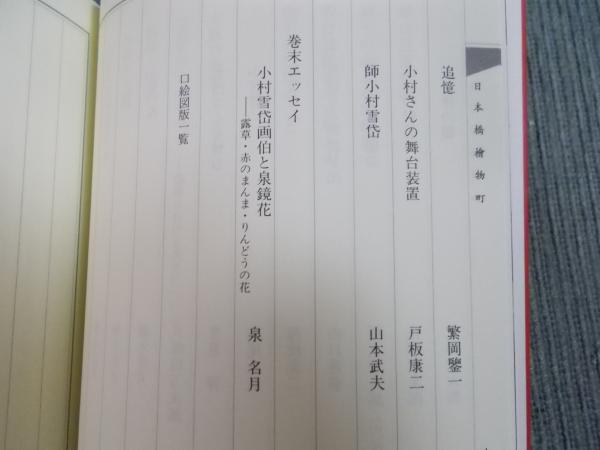 日本橋檜物町
追憶 繁岡鑒一
小村さんの舞台装置 戸板康二
師小村雪岱 山本武夫
巻末エッセイ
小村雪岱画伯と泉鏡花 泉 名月
――露草・赤のまんま・りんどうの花
口絵図版一覧